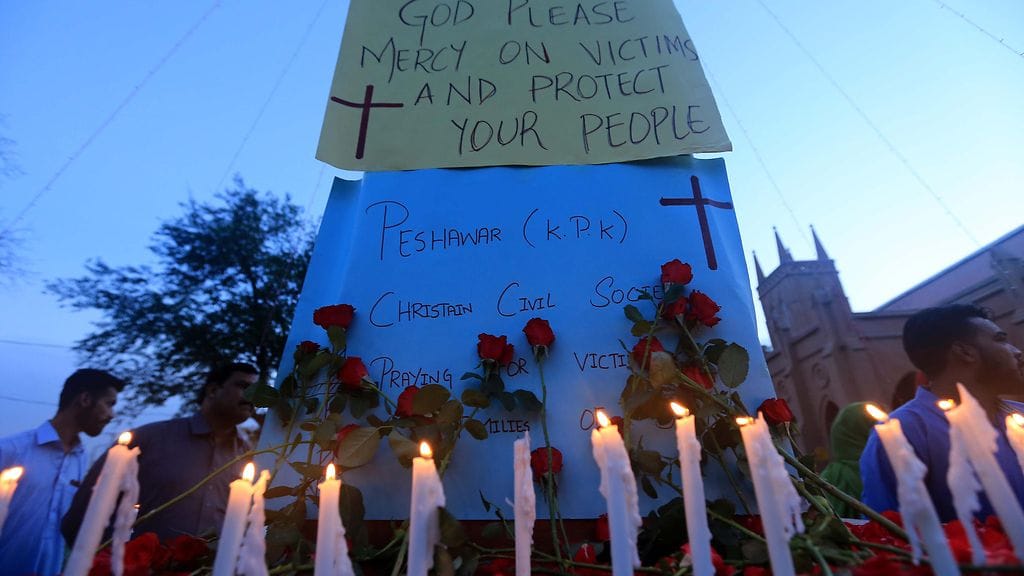 GOD PLEASE
MERCY ON VICTIMS
AND PROTECT
YOUR PEOPLE
PESHAWAR (K.P.K)
CHRISTAIN CIVIL
PRAYING